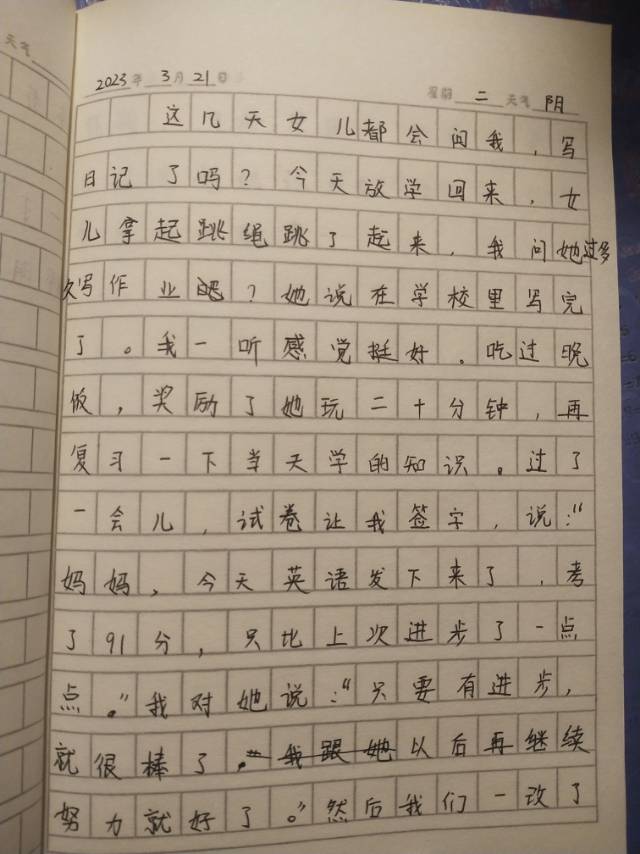 天气
2023年 3月 21日 星期 二 天气 阴
这几天女儿都会问我，写
日记了吗？今天放学回来，女
儿拿起跳绳跳了起来，我问她过多
久写作业吧？她说在学校里写完
了。我一听感觉挺好。吃过晚
饭，奖励了她玩二十分钟，再
复习一下当天学的知识。过了
一会儿，试卷让我签字，说："
妈妈，今天英语发下来了，考
了91分，只比上次进步了一点
点。"我对她说："只要有进步，
就很棒了。"我跟她以后再继续
努力就好了。"然后我们一改了